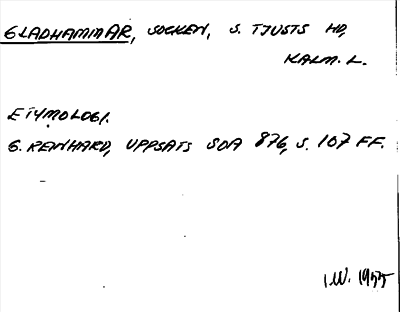 GLADHAMMAR, SOCKEN, S. TJUSTS HD,
KALM. L.
ETYMOLOGI.
G. RENHARD, UPPSATS SOA 876, S. 107 FF.
I.W. 1955